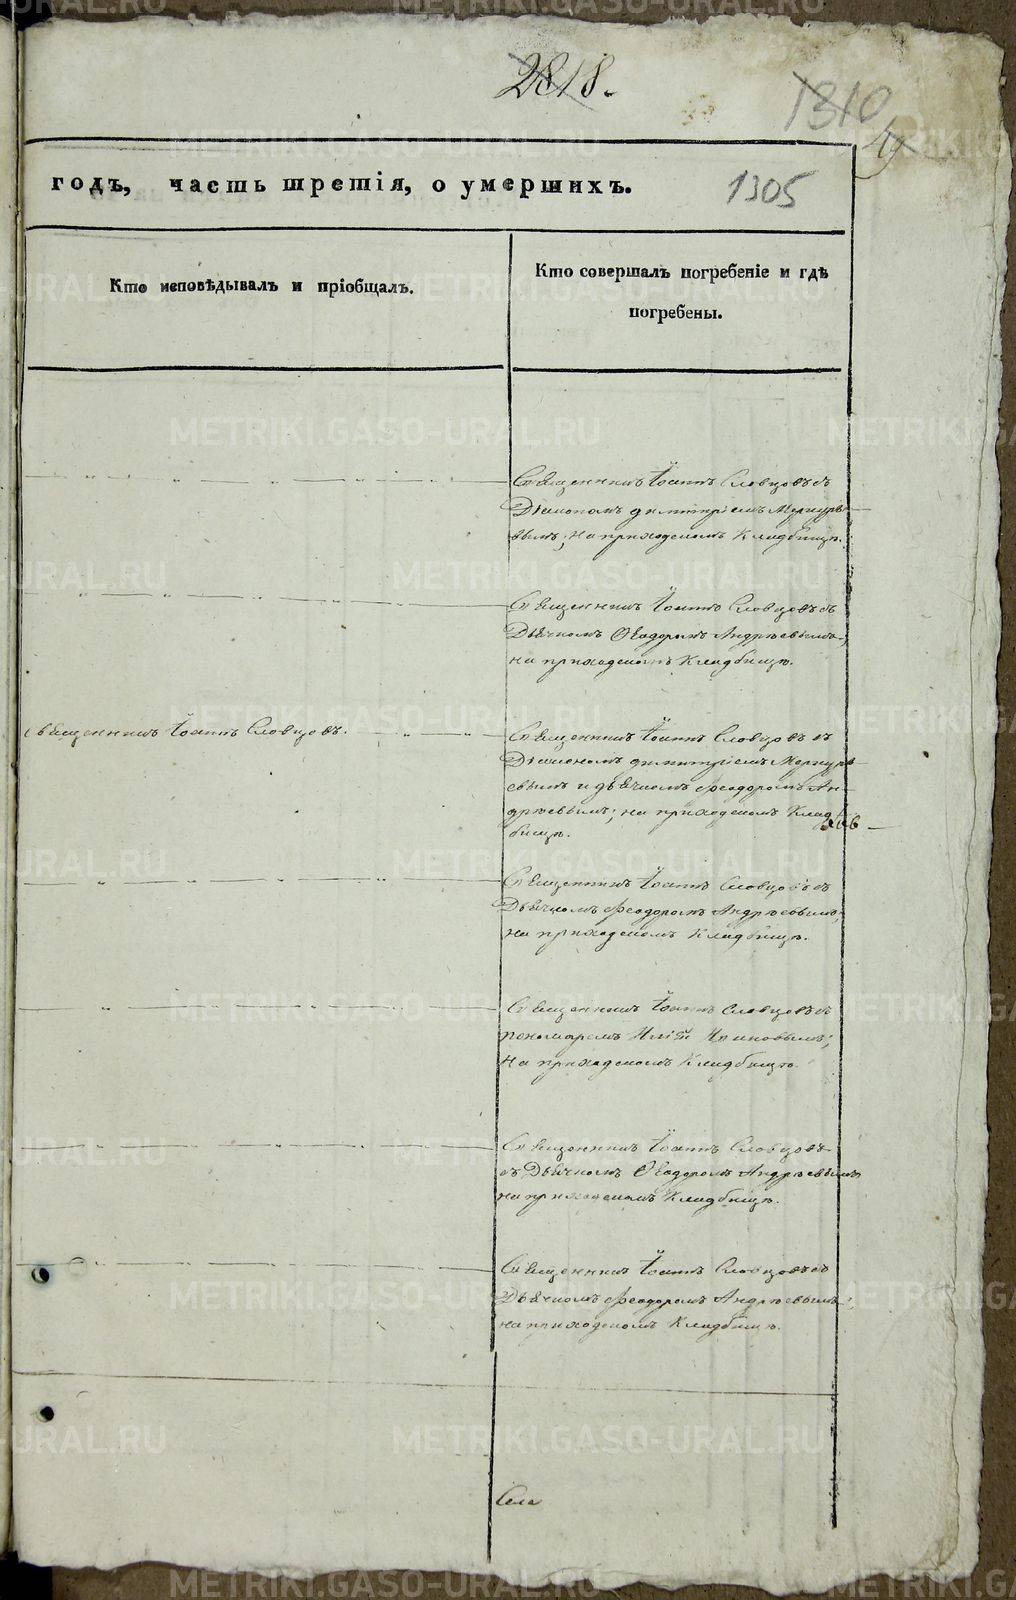 2818.
1310
годъ, часть третія, о умершихъ.
1305
Кто исповѣдывалъ и пріобщалъ.
Кто совершалъ погребеніе и гдѣ
погребены.
Священникъ Іоаннъ Словцовъ съ
Діакономъ Димитріемъ Меркурье-
вымъ; на приходскомъ кладбищѣ.
Священникъ Іоаннъ Словцовъ съ
Дьячкомъ Ѳеодоромъ Андреевымъ,
на приходскомъ кладбищѣ.
Священникъ Іоаннъ Словцовъ.
Священникъ Іоаннъ Словцовъ съ
Діакономъ Димитріемъ Меркурь-
евымъ и дьячкомъ Феодоромъ Ан-
дреевымъ; на приходскомъ Клад
бищѣ.
Священникъ Іоаннъ Словцовъ съ
Дьячкомъ Феодоромъ Андреевымъ;
на приходскомъ Кладбищѣ.
Священникъ Іоаннъ Словцовъ съ
пономаремъ Иліей
на приходскомъ Кладбищѣ.
Священникъ Іоаннъ Словцовъ
съ Дьячкомъ Ѳеодоромъ Андреевымъ
на приходскомъ Кладбищѣ.
Священникъ Іоаннъ Словцовъ съ
Дьячкомъ Феодоромъ Андреевымъ;
на приходскомъ Кладбищѣ.
Села
METRIKI.GASO-URAL.RU